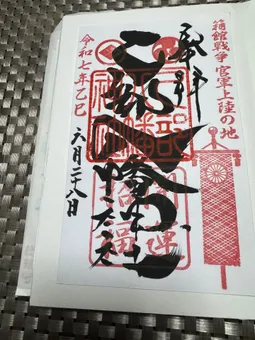 箱館戦争 官軍上陸の地
奉拝
乙部八幡神社
令和七年乙巳
六月二十八日